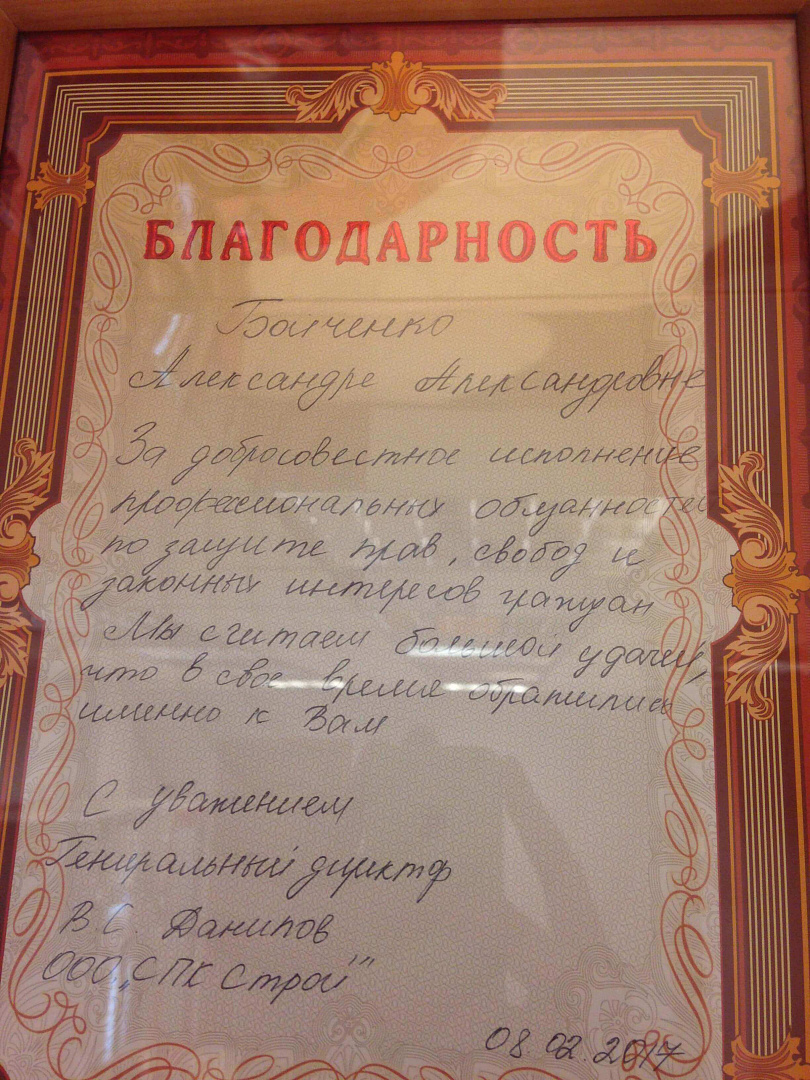 БЛАГОДАРНОСТЬ
Александре Александровне
За добросовестное исполнение
профессиональных обязанностей
по защите прав, свобод и
законных интересов граждан
Мы считаем большой удачей,
что в свое время обратились
именно к Вам
С уважением
Генеральный директор
В.С. Данилов
ООО „СПК Строй"
08.02.2017